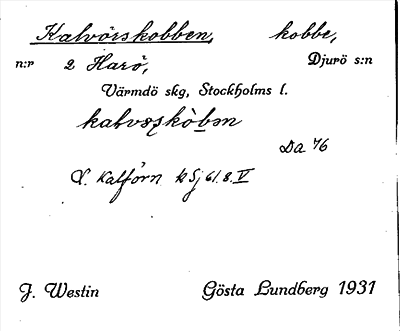 Kalvörskobben, kobbe,
n:r 2 Harö, Djurö s:n
Värmdö skg, Stockholms l.
Da 76
Kalförn Sj 61.8.V
J. Westin Gösta Lundberg 1931